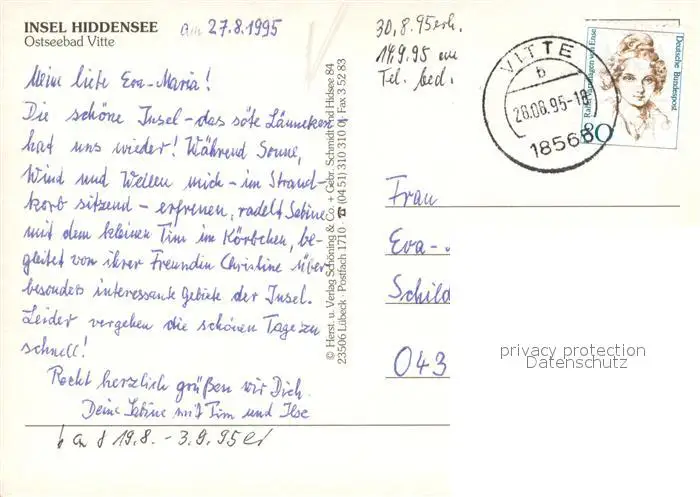 INSEL HIDDENSEE
Ostseebad Vitte
am 27.8.1995
Meine liebe Eva-Maria!
Die schöne Insel - das söte Länneken
hat uns wieder! Während Sonne,
Wind und Wellen mich - im Strand-
korb sitzend - erfreuen, radelt Sabine
mit dem kleinen Tim im Körbchen, be-
gleitet von ihrer Freundin Christine über
besonders interessante Gebiete der Insel.
Leider vergehen die schönen Tage zu
schnell!
Recht herzlich grüßen wir Dich.
Deine Sabine mit Tim und Ilse
19.8. - 3.9.95
© Herst. u. Verlag Schöning & Co. + Gebr. Schmidt und Hidsee 84
23506 Lübeck · Postfach 1710 · ☎ (04 51) 310 310 · Fax 3 52 83
30.8.95 erh.
14.9.95
Tel. bed.
VITTE
b
28.08.95-18
18568
Deutsche Bundespost
Rahel Varnhagen von Ense
80
Frau
Eva-
Schild
043
privacy protection
Datenschutz